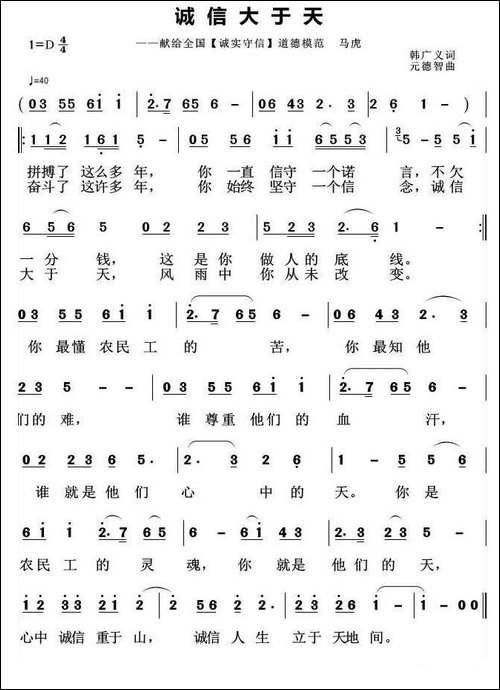 诚信大于天
1=D 4/4 ——献给全国【诚实守信】道德模范 马虎
韩广义词
♩=40 元德智曲
(03 55 6i i | 2·7 65 6 - | 06 43 2· 3 | 2 6 1 -)
|: 1 1 2 1 6 1 5 - | 05 56 1 6553 | 5 - 5 5 i
拼搏了 这么多 年, 你 一直 信守 一个诺 言,不欠
奋斗了 这许多 年, 你 始终 坚守 一个信 念,诚信
6 5 6 5 0 2 2 3 | 5 5 2 3 2· 6 | 1 - - - :|
一 分 钱, 这 是 你 做 人 的 底 线。
大 于 天, 风 雨 中 你 从 未 改 变。
03 55 6i i | 2·7 65 6 - | 06 43 2· 3
你 最懂 农民 工 的 苦, 你 最知 他
2 3 5 - - | 03 55 6i i | 2·7 65 6 -
们的 难, 谁 尊重 他们 的 血 汗,
02 23 65 5· | 5 02 2· 6 | 1 - 5 5 6
谁 就是 他们 心 中的 天。你是
6i i 2·7 65 | 6 - - 0i | 6i 43 23 3 | 02 23 5 -
农民 工 的 灵 魂, 你 就是 他们 的 天,
i2 33 22 i | 2 - - - | i2 33 2 2 | i2 2i i - | i - 00 ||
心中 诚信 重于 山, 诚信 人 生 立于 天地 间。